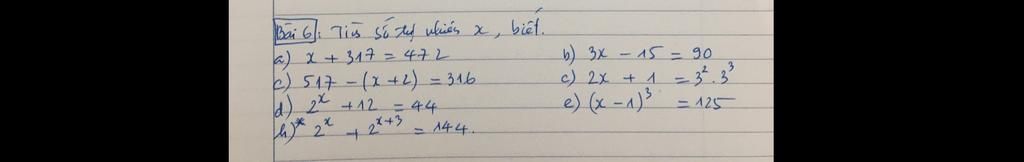 Bài 6: Tìm số tự nhiên x, biết.
a) x + 317 = 472 b) 3x - 15 = 90
c) 517 - (x + 2) = 316 c) 2x + 1 = 3².3³
d) 2ˣ + 12 = 44 e) (x - 1)³ = 125
h)* 2ˣ + 2ˣ⁺³ = 144.